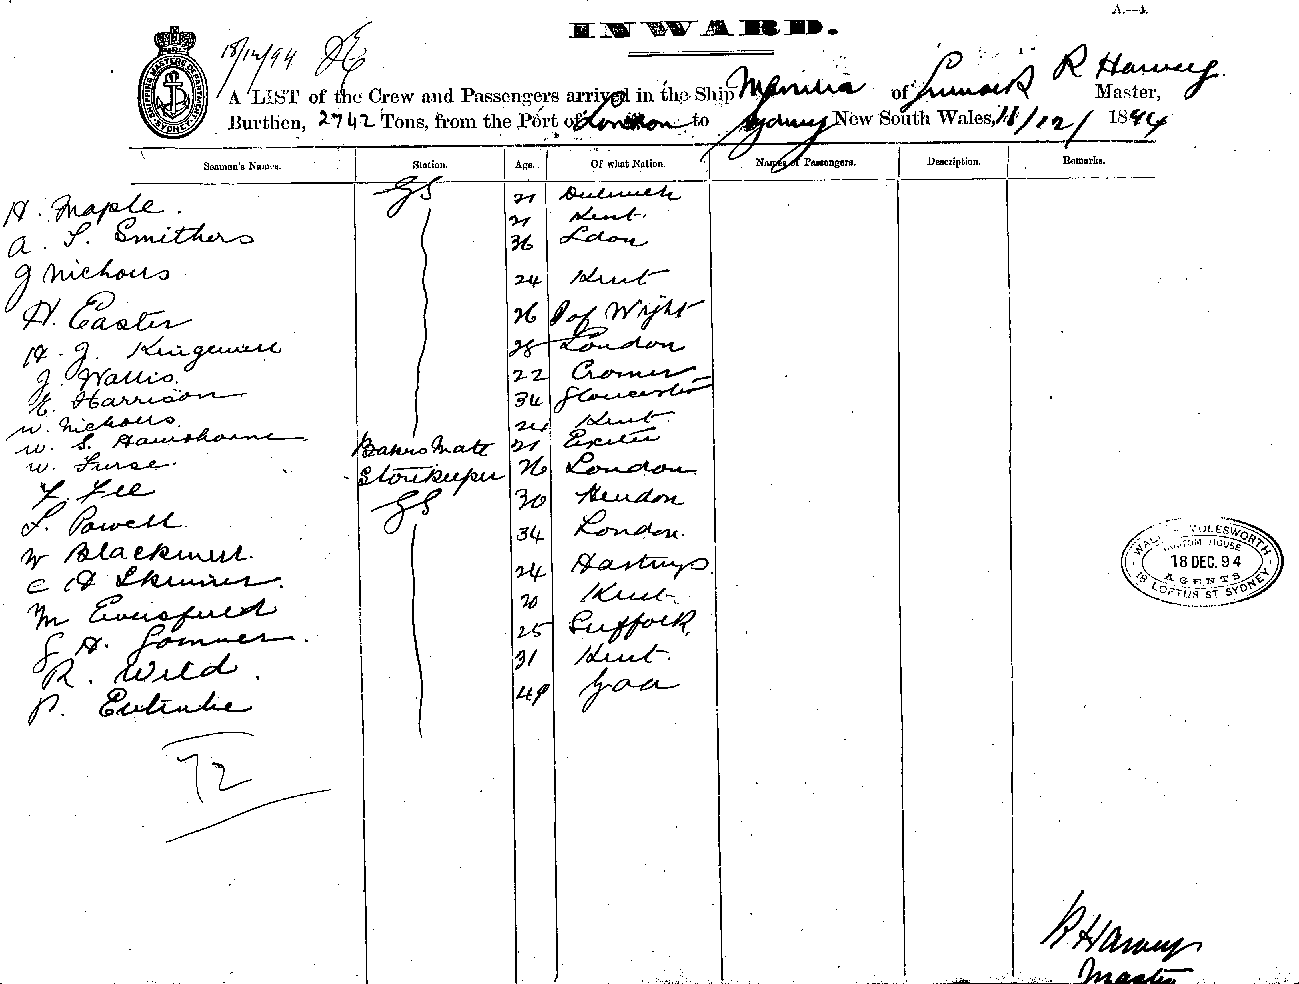 A.—4.
INWARD.
18/12/94
A LIST of the Crew and Passengers arrived in the Ship Manilla of Greenock R Harvey Master,
Burthen, 2742 Tons, from the Port of London to Sydney New South Wales, 18/12/ 1894
Seaman's Names. Station. Age. Of what Nation. Names of Passengers. Description. Remarks.
H. Maple. GS 21 Dulwich
A. S. Smithers 21 Kent.
J Nicholls 36 Ldon
H. Easter 24 Kent
H. J. 26 I of Wight
J. Wallis. 28 London
E. Harrison 22 Cromer
W. Nicholls. 34 Gloucester
W. S. Hawthorne 24 Kent.
W. Furse. Bakers Mate 21 Exeter
F. Fee Storekeeper 26 London
S. Powell GS 30 Hendon
W Blackwell. 34 London.
C H Skinner. 24 Hastings
M Eversfield 20 Kent.
G H. 25 Suffolk.
R. Wild. 31 Kent.
P. 49 Goa
72
18 DEC. 94
CUSTOM HOUSE
AGENTS
18 LOFTUS ST SYDNEY
R Harvey
Master